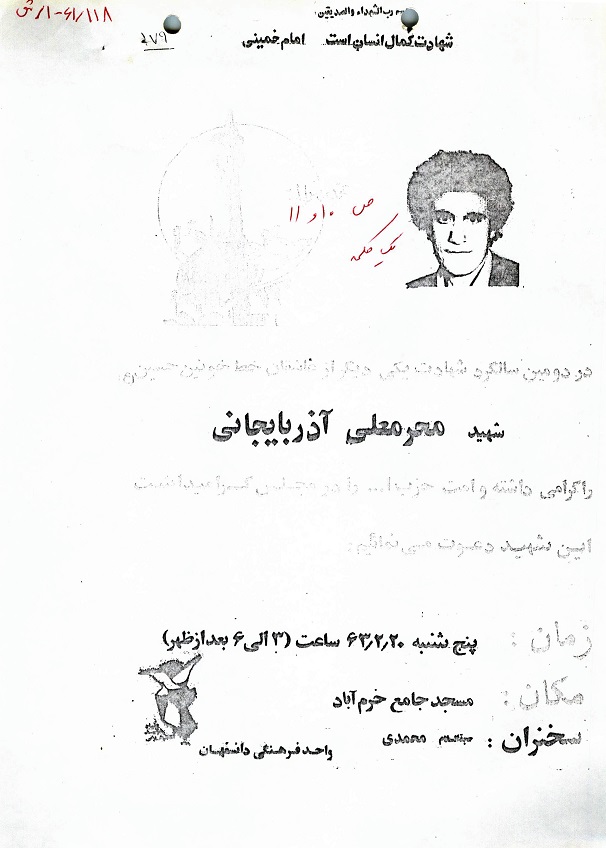 ۶۱/۱۱۸-۱/ ش
رب الشهداء والصدیقین
شهادت کمال انسان است   امام خمینی
۸۷۹
ص ۱۰ و ۱۱
یک
در دومین سالگرد شهادت یکی دیگر از عاشقان خط خونین حسین
شهید محرمعلی آذربایجانی
را گرامی داشته و امت حزب‌ا... را در مجلس که
این شهید دعوت می‌نمائیم:
زمان : پنج شنبه ۶۳٫۲٫۲۰ ساعت (۳ الی ۶ بعدازظهر)
مکان : مسجد جامع خرم‌آباد
سخنران : محمدی
واحد فرهنگی دانسفهان